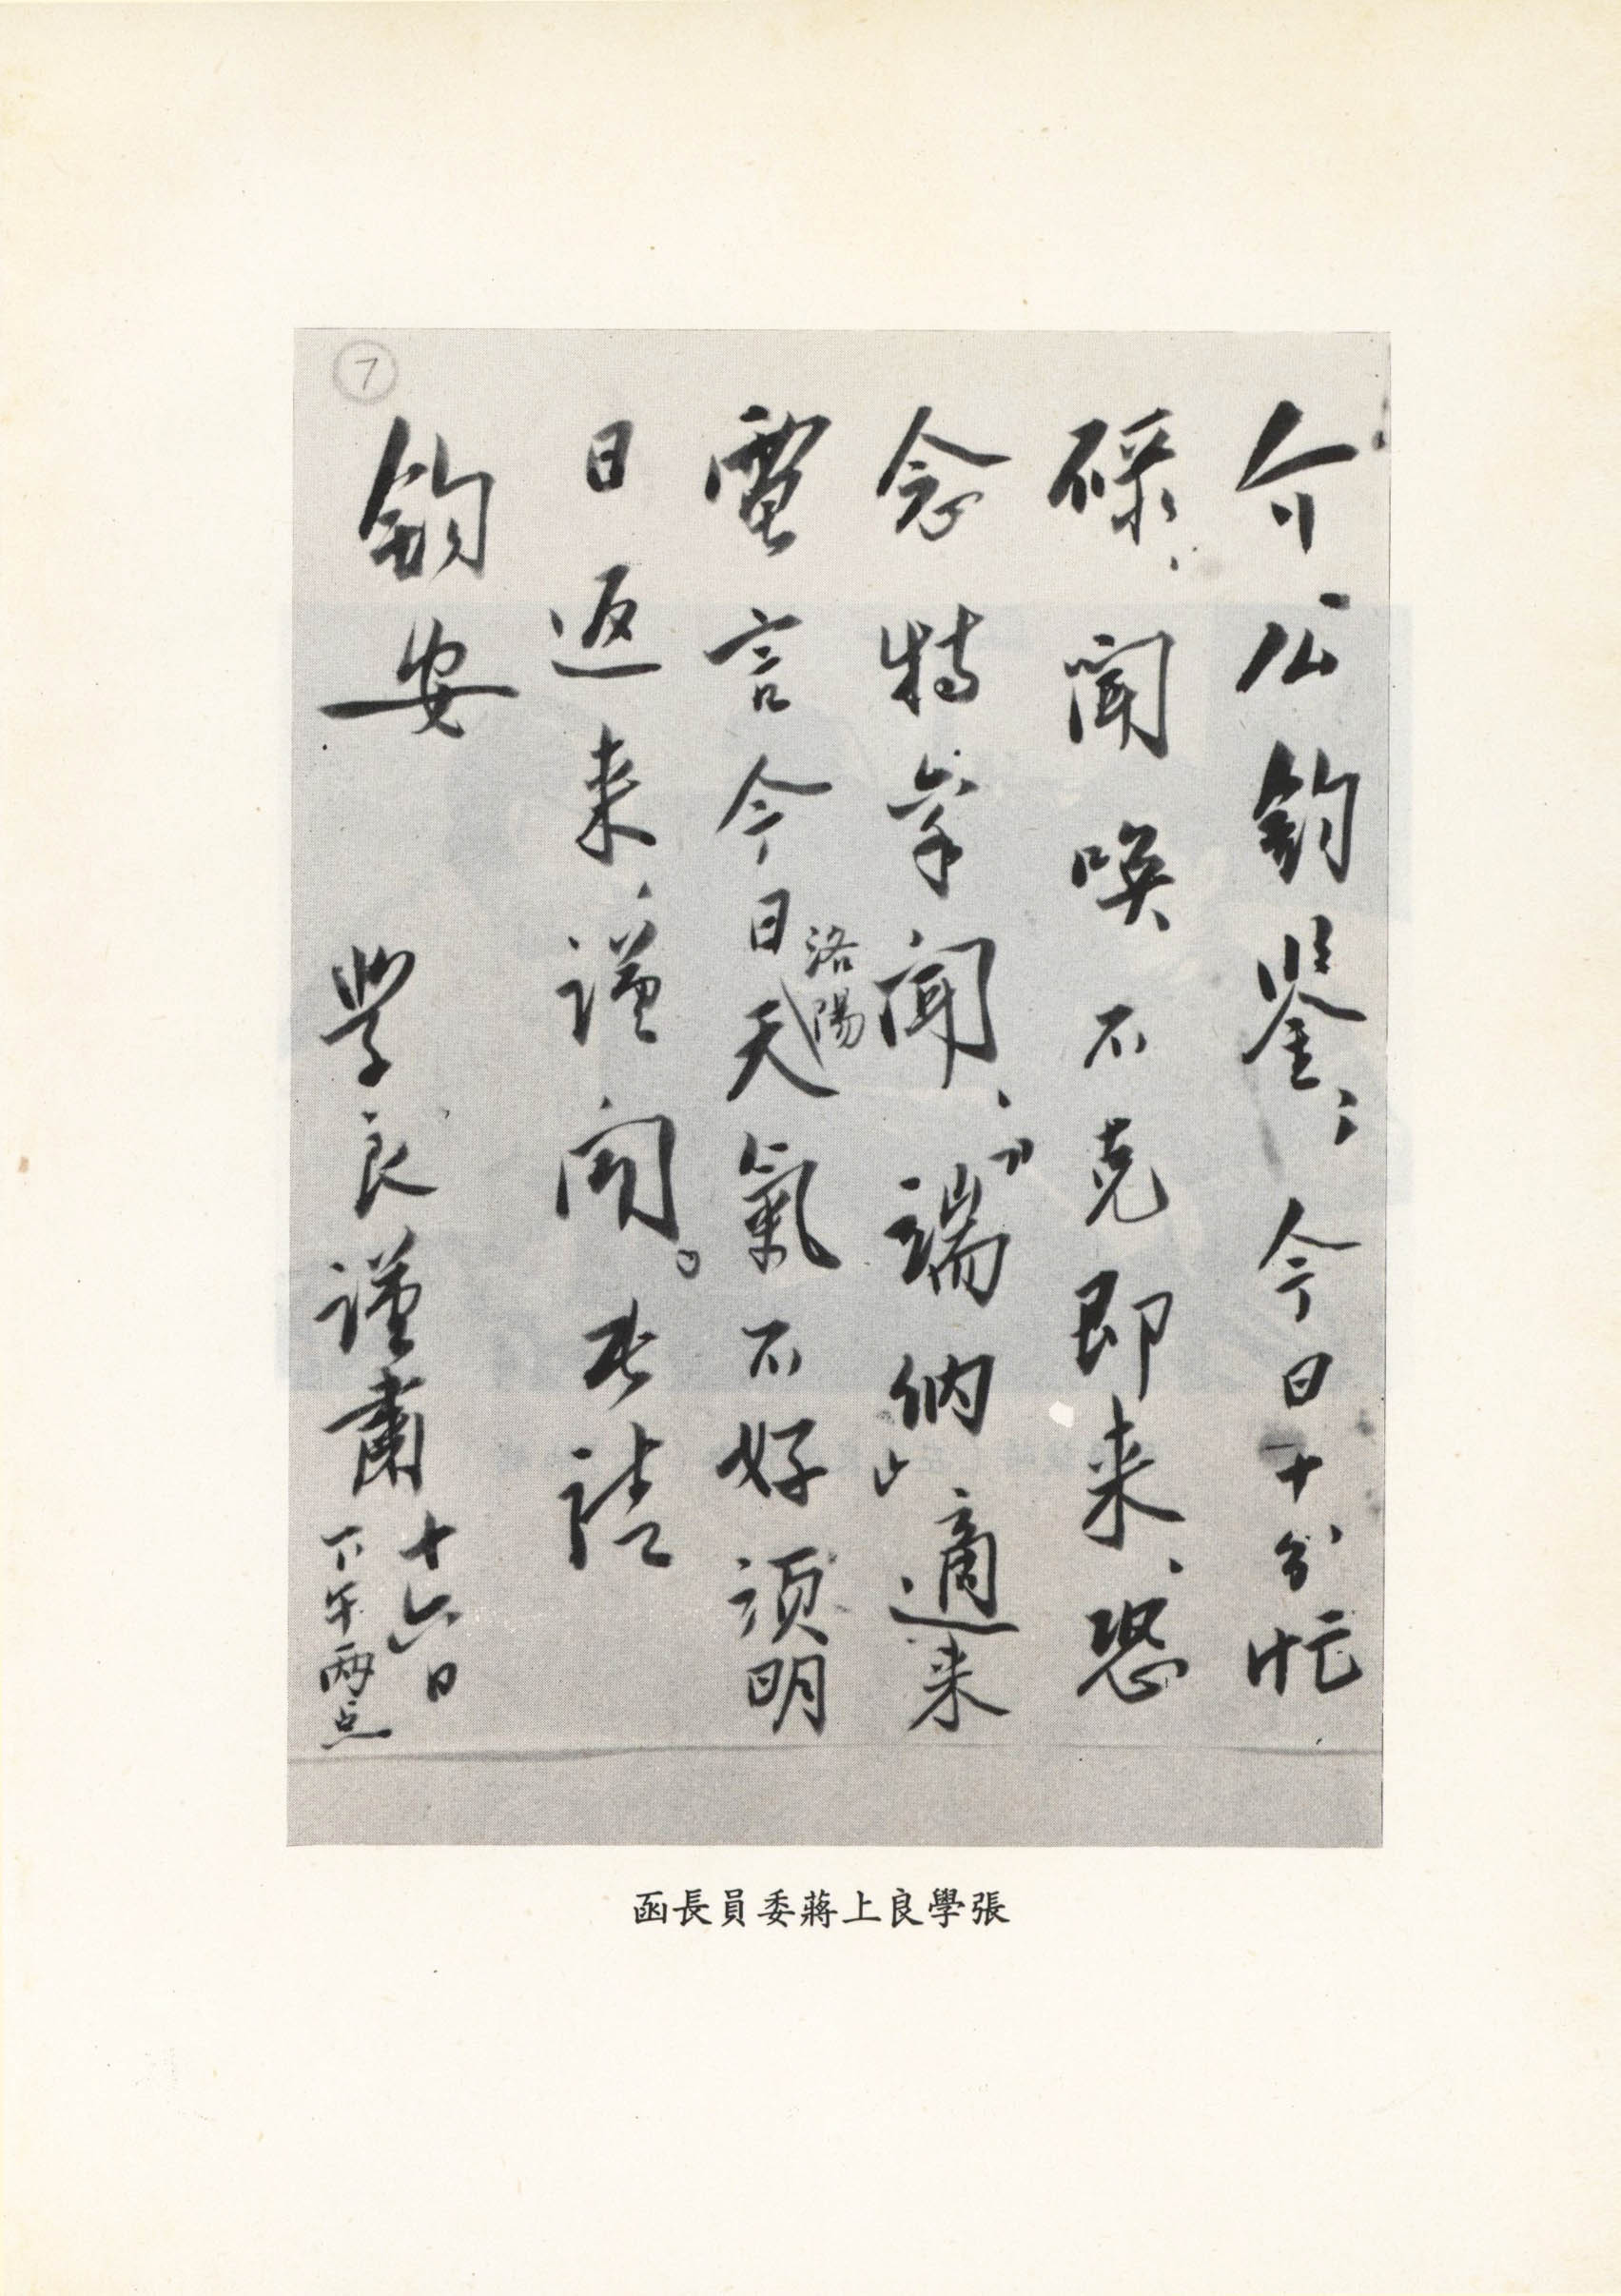 介公鈞鑒：今日十分忙
碌，聞喚不克即来，恐
念特奉聞，“端納”適来
電言今日洛陽天氣不好須明
日返来，謹聞。此請
鈞安
學良謹肅 十六日
下午兩点
7
張學良上蔣委員長函